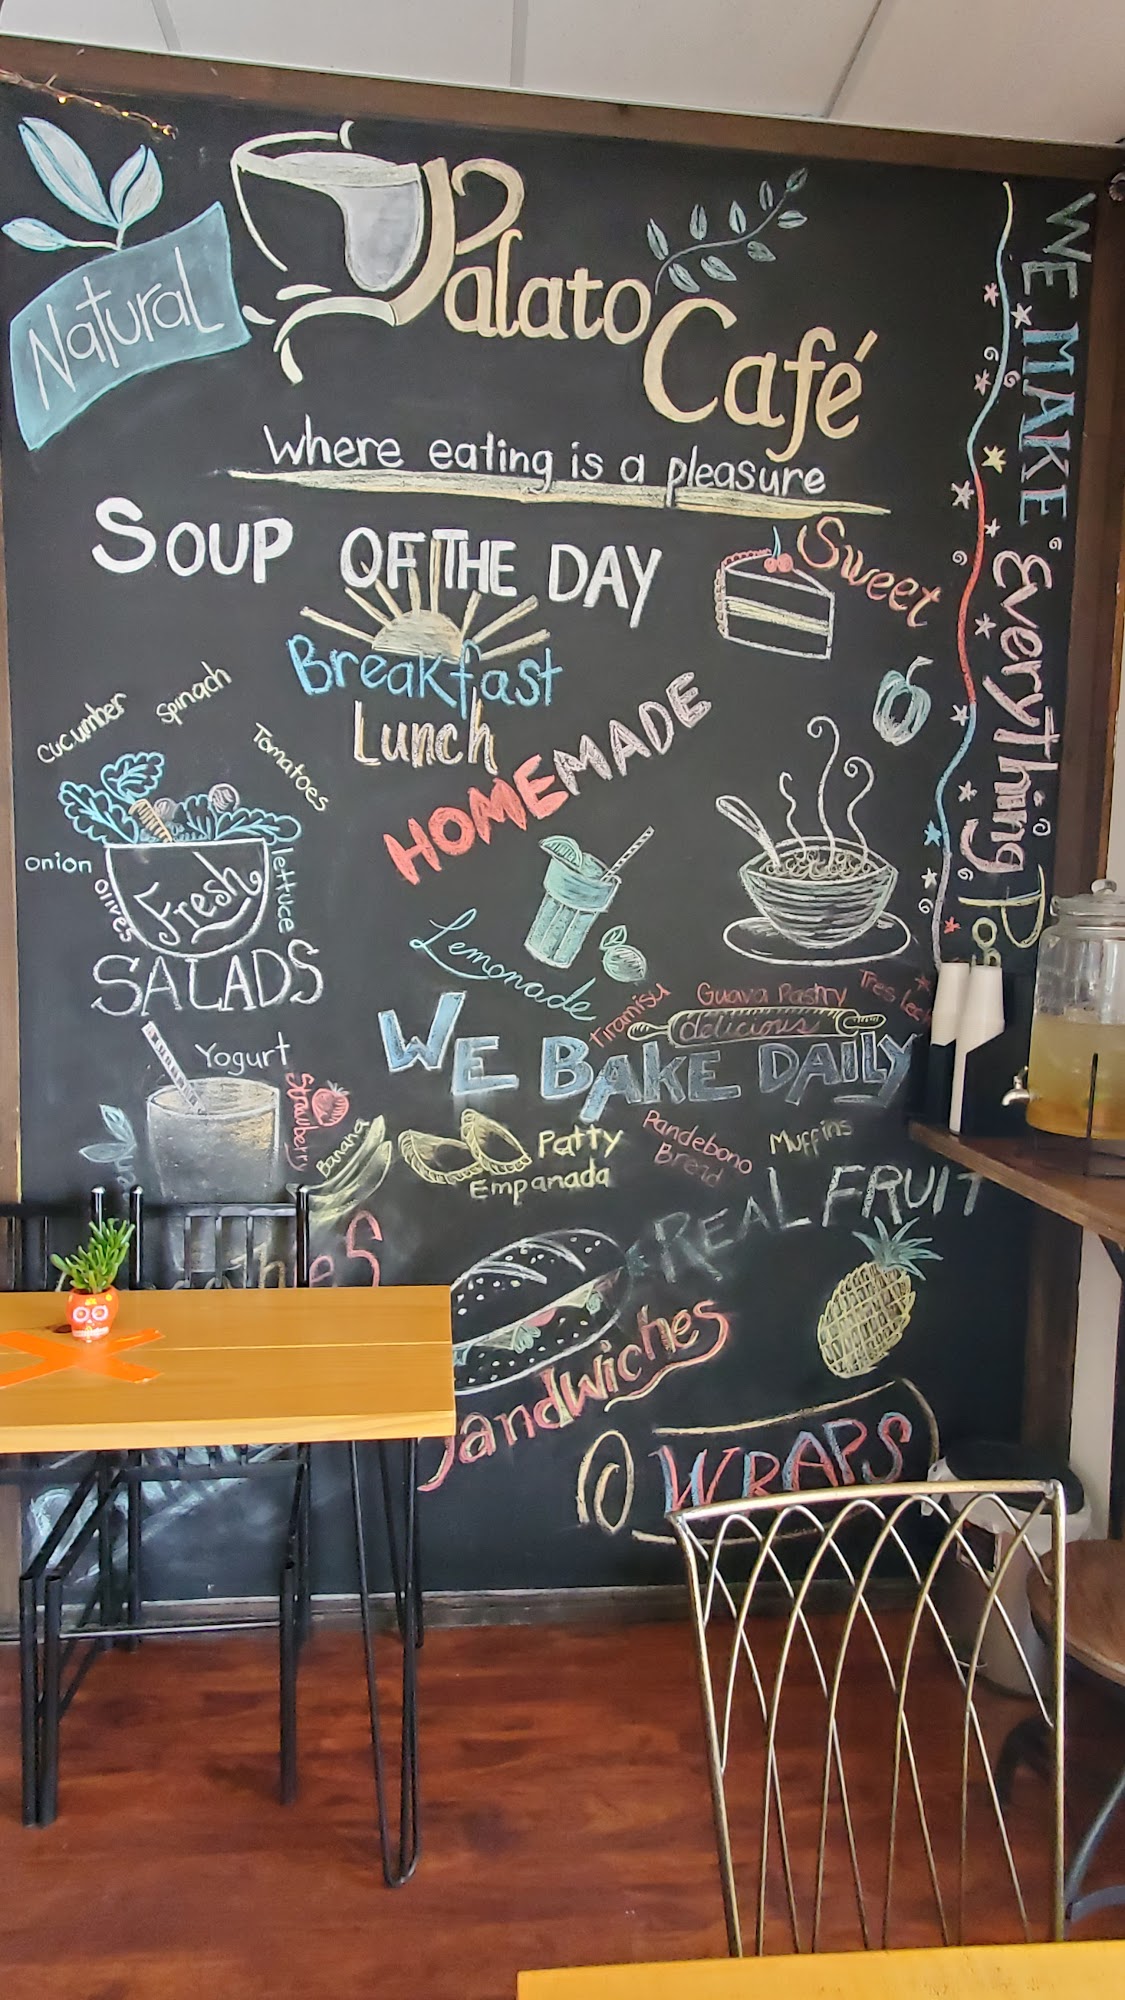 Natural
Palato
Café
Where eating is a pleasure
SOUP OF THE DAY
Sweet
Breakfast
Lunch
HOMEMADE
cucumber
spinach
Tomatoes
onion
olives
lettuce
Fresh
SALADS
Lemonade
Tiramisu
Guava Pastry
Tres
delicious
WE BAKE DAILY
Yogurt
Strawberry
Banana
Patty
Empanada
Pandebono
Bread
Muffins
REAL FRUIT
Sandwiches
WRAPS
WE MAKE Everything